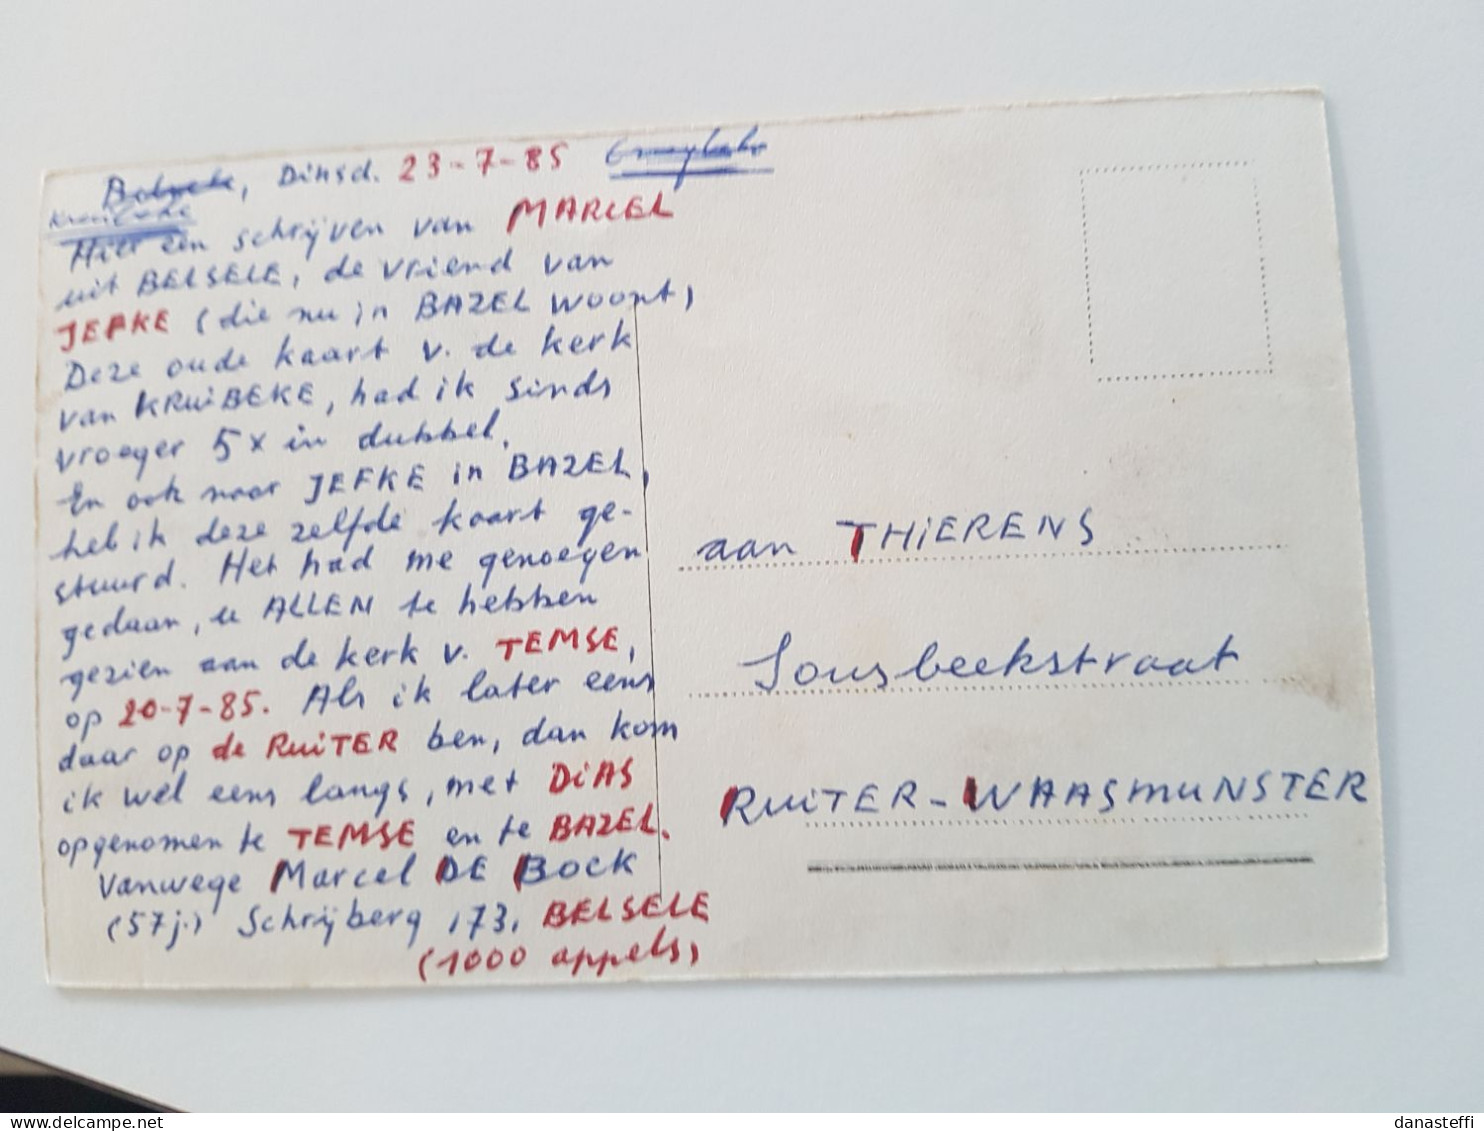 Dinsd. 23-7-85
Hier een schrijven van MARCEL
uit BELSELE, de vriend van
JEFKE (die nu in BAZEL woont)
Deze oude kaart v. de kerk
van KRUiBEKE, had ik sinds
vroeger 5x in dubbel.
En ook naar JEFKE in BAZEL,
heb ik deze zelfde kaart ge-
stuurd. Het had me genoegen
gedaan, u ALLEN te hebben
gezien aan de kerk v. TEMSE,
op 20-7-85. Als ik later eens
daar op de RUiTER ben, dan kom
ik wel eens langs, met DiAS
opgenomen te TEMSE en te BAZEL.
Vanwege Marcel DE BOCK
(57j.) Schrijberg 173, BELSELE
(1000 appels)
aan THiERENS
Sousbeekstraat
RUiTER-WAASMUNSTER
delcampe.net
danasteffi